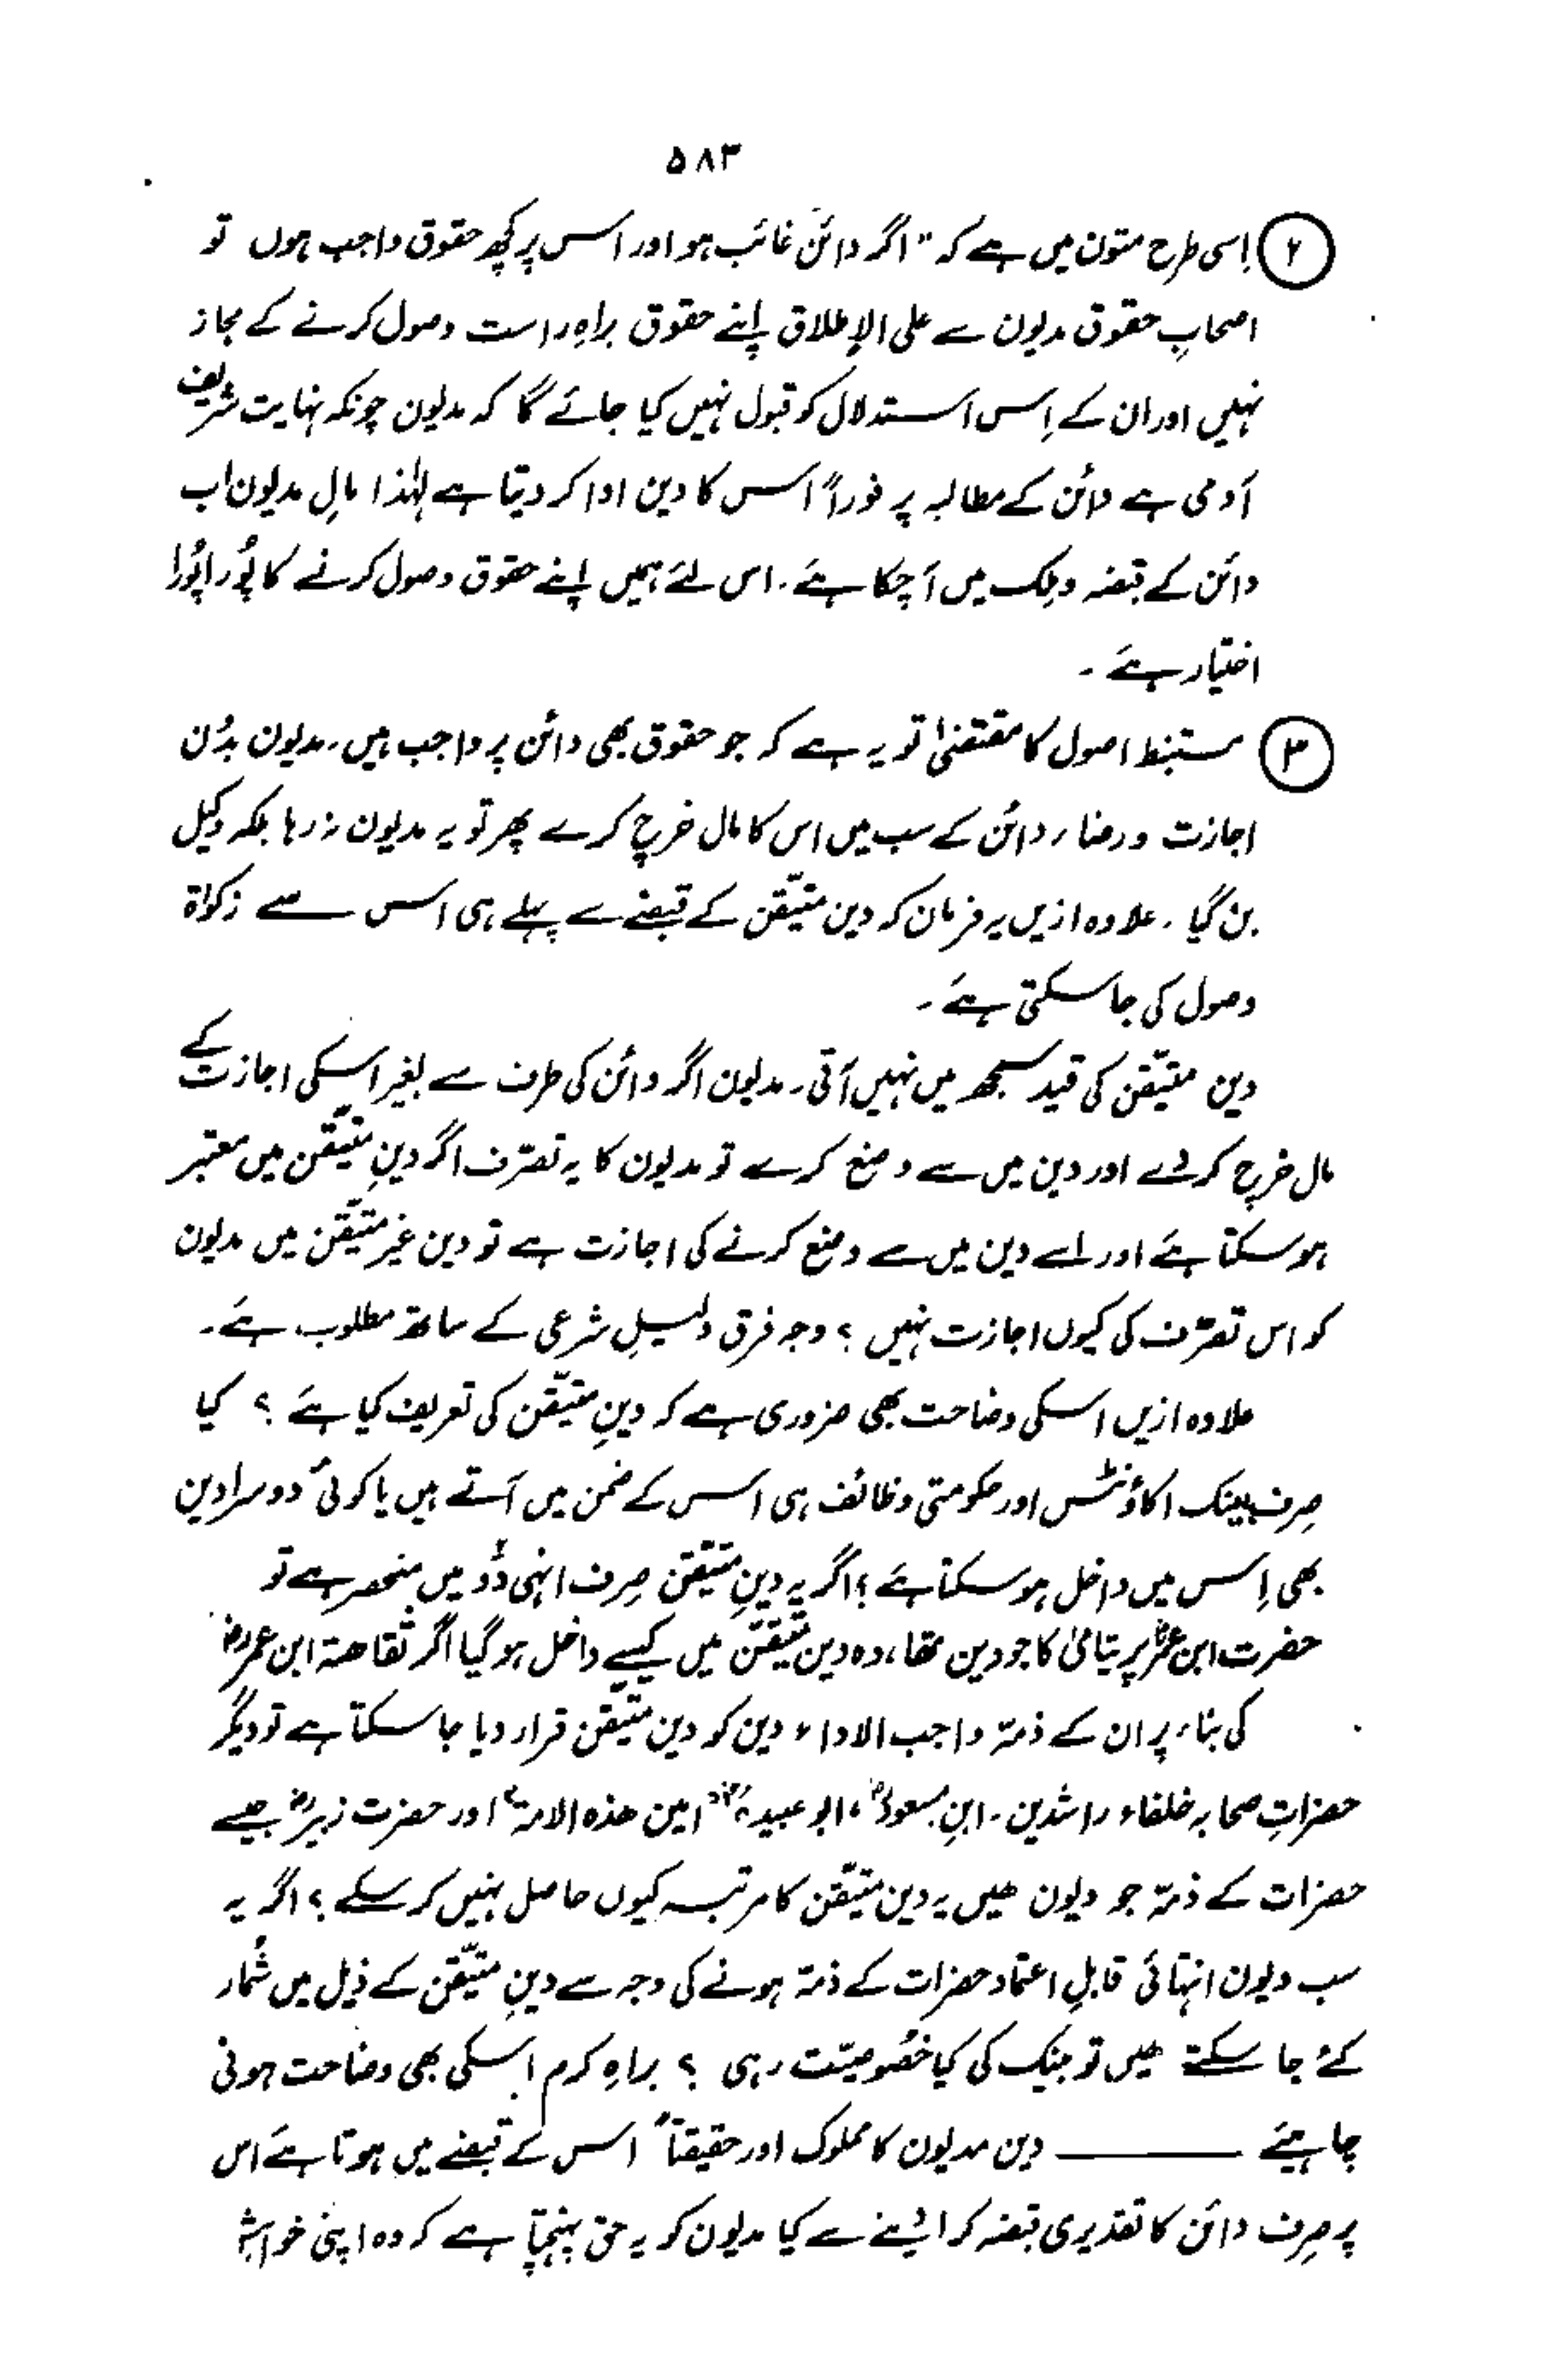 ۵۸۳
۲ اِسی طرح متون میں ہے کہ "اگر دائن غائب ہو اور اس پر کچھ حقوق واجب ہوں تو
اصحابِ حقوق مدیون سے علی الاطلاق اپنے حقوق براہِ راست وصول کرنے کے مجاز
نہیں اور ان کے اِس استدلال کو قبول نہیں کیا جائے گا کہ مدیون چونکہ نہایت شریف
آدمی ہے دائن کے مطالبہ پر فوراً اس کا دین ادا کر دیتا ہے لہٰذا مالِ مدیون اب
دائن کے قبضہ و ملک میں آ چکا ہے۔ اس لئے ہمیں اپنے حقوق وصول کرنے کا پُورا پُورا
اختیار ہے۔
۳ مستنبط اصول کا مقتضیٰ تو یہ ہے کہ جو حقوق بھی دائن پر واجب ہیں۔ مدیون بدُن
اجازت و رضاء دائن کے سب میں اس کا مال خرچ کرے پھر تو یہ مدیون نہ رہا بلکہ وکیل
بن گیا۔ علاوہ ازیں یہ فرمان کہ دین متیقّن کے قبضے سے پہلے ہی اس سے زکوٰۃ
وصول کی جا سکتی ہے۔
دین متیقّن کی قید سمجھ میں نہیں آتی۔ مدیون اگر دائن کی طرف سے بغیر اسکی اجازت کے
مال خرچ کر دے اور دین میں سے وضع کرے تو مدیون کا یہ تصرّف اگر دینِ متیقّن میں معتبر
ہو سکتا ہے اور اسے دین میں سے وضع کرنے کی اجازت ہے تو دین غیر متیقّن میں مدیون
کو اس تصرّف کی کیوں اجازت نہیں؟ وجہ فرق دلیلِ شرعی کے ساتھ مطلوب ہے۔
علاوہ ازیں اسکی وضاحت بھی ضروری ہے کہ دینِ متیقّن کی تعریف کیا ہے؟ کیا
صِرف بینک اکاؤنٹس اور حکومتی وظائف ہی اس کے ضمن میں آتے ہیں یا کوئی دوسرا دین
بھی اِس میں داخل ہو سکتا ہے؟ اگر یہ دینِ متیقّن صِرف انہی دُو میں منحصر ہے تو
حضرت ابن عمرؓ پر یتامیٰ کا جو دین تھا، وہ دین متیقّن میں کیسے داخل ہو گیا اگر ثقاھۃ ابن عمرؓ
کی بناء پر ان کے ذمّہ واجب الاداء دین کو دین متیقّن قرار دیا جا سکتا ہے تو دیگر
حضراتِ صحابہ خلفاء راشدین۔ ابنِ مسعودؓ، ابوعبیدہؓ "امین ھذہ الامۃ" اور حضرت زبیرؓ جیسے
حضرات کے ذمّہ جو دیون ھیں یہ دین متیقّن کا مرتبہ کیوں حاصل نہیں کر سکے؟ اگر یہ
سب دیون انتہائی قابلِ اعتماد حضرات کے ذمّہ ہونے کی وجہ سے دینِ متیقّن کے ذیل میں شُمار
کئے جا سکتے ھیں تو بینک کی کیا خصُوصیّت رہی؟ براہِ کرم اسکی بھی وضاحت ہونی
چاہیئے ——— دین مدیون کا مملوک اور حقیقتاً اس کے قبضے میں ہوتا ہے اس
پر صِرف دائن کا تقدیری قبضہ کرا لینے سے کیا مدیون کو یہ حق پہنچتا ہے کہ وہ اپنی خواہش